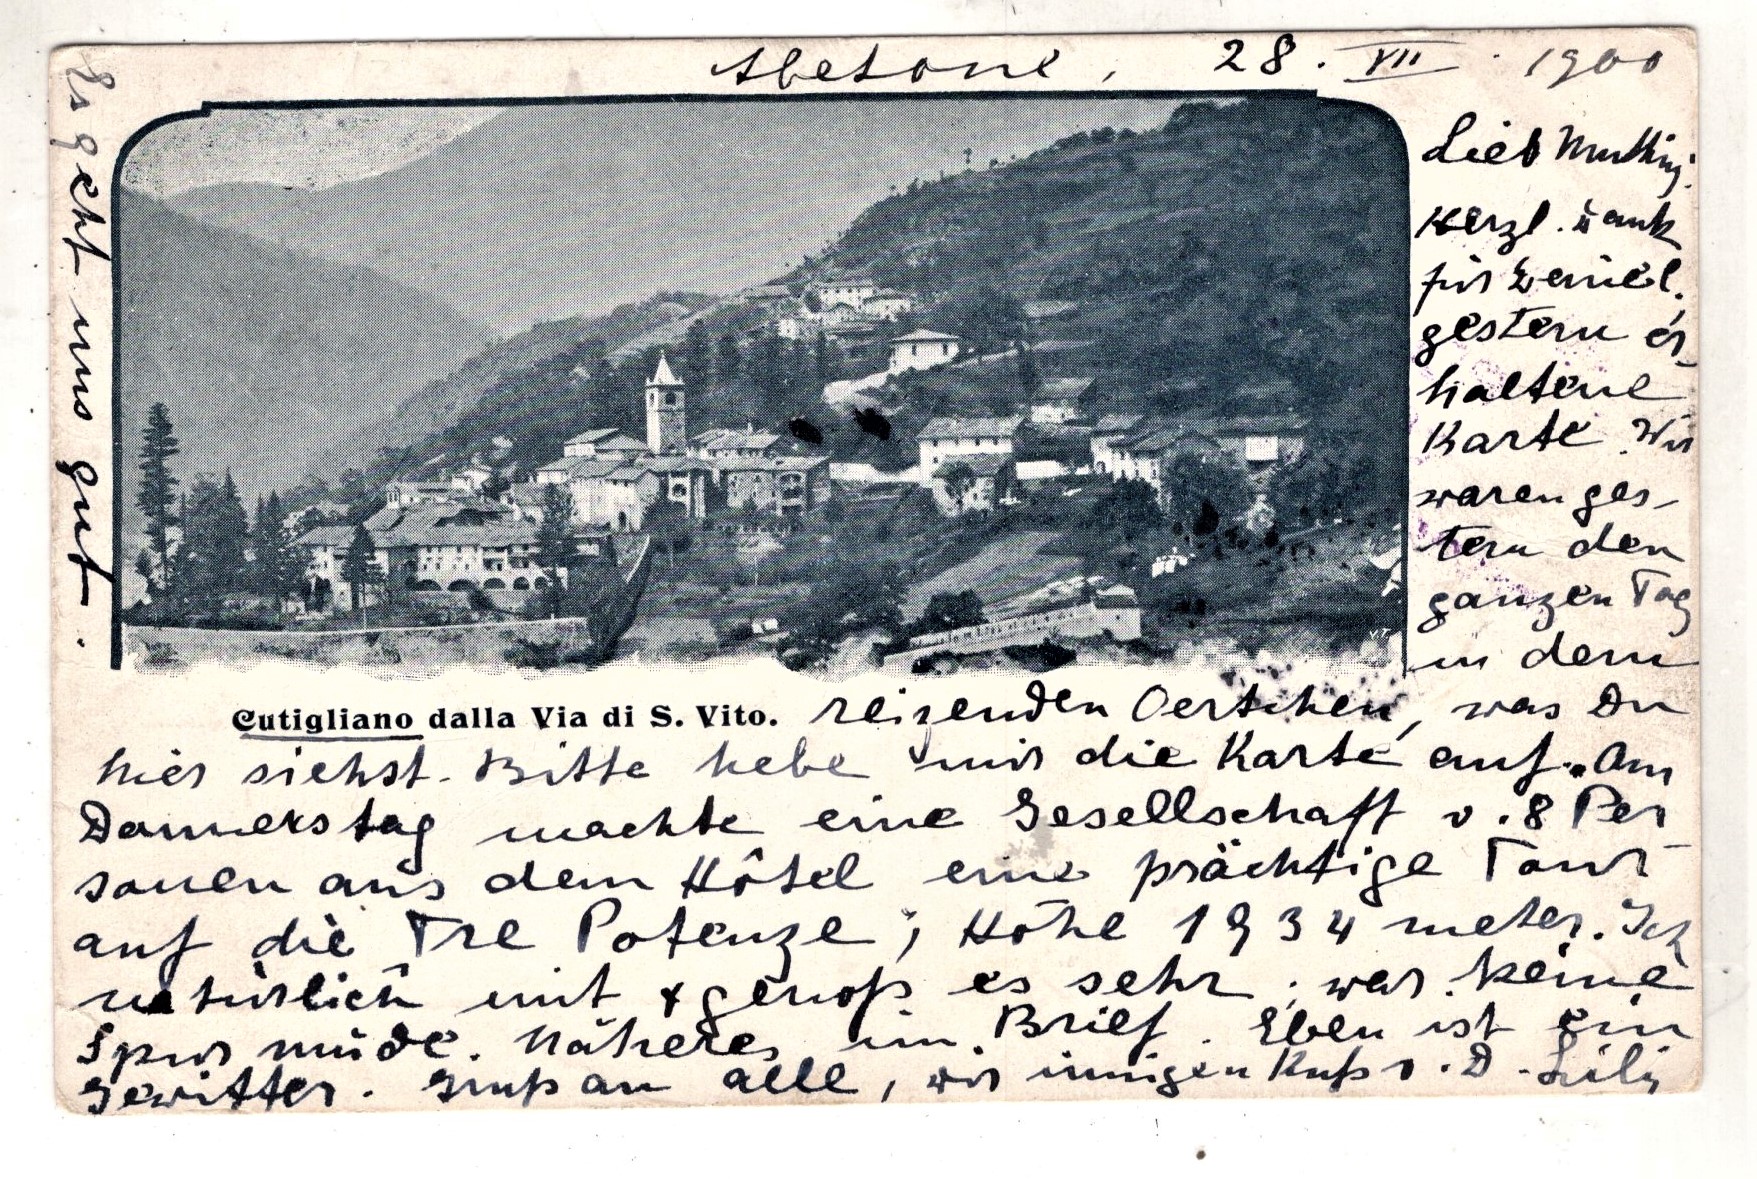 Abetone, 28. VII. 1900
Lieb Mutting.
Herzl. Dank
für Deine l.
gestern er-
haltene
Karte. Wir
waren ges-
tern den
ganzen Tag
in dem
Cutigliano dalla Via di S. Vito.
reizenden Oertchen, was Du
hier siehst. Bitte hebe mir die Karte auf. Am
Donnerstag machte eine Gesellschaft v. 8 Per-
sonen aus dem Hôtel eine prächtige Tour
auf die Tre Potenze, Höhe 1934 meter. Ich
natürlich mit & genoß es sehr, war keine
Spur müde. Näheres im Brief. Eben ist ein
Gewitter. Gruß an alle, Dir innigen Kuß v. D. Lily
Es geht uns gut.